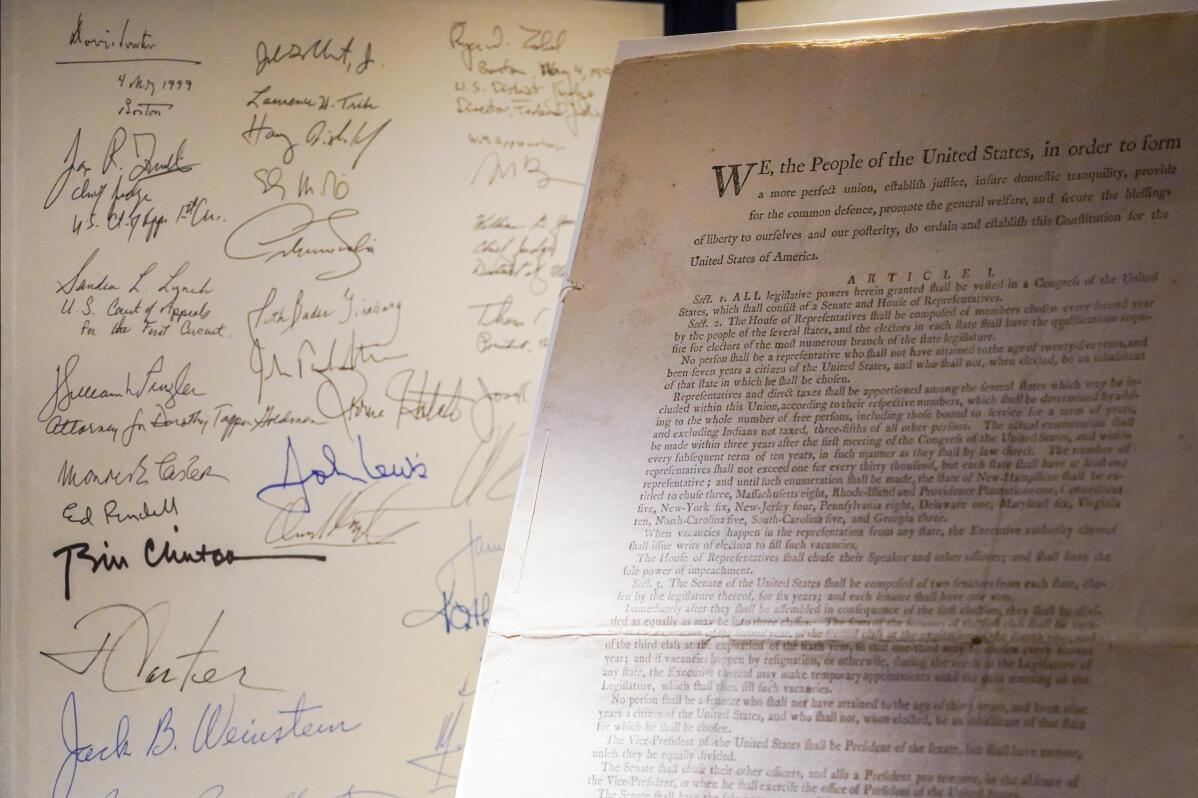 4 May 1999
Boston
Chief Judge
U.S. Ct. of App. 1st Cir.
Sandra L. Lynch
U.S. Court of Appeals
for the First Circuit.
Attorney for Dorothy Tapper Goldman
Ed Rendell
Bill Clinton
J Carter
Jack B. Weinstein
Laurence H. Tribe
Ruth Bader Ginsburg
John Lewis
Boston May 4,
U.S. District Judge
Director, Federal
Chief Judge
District of
President,
WE, the People of the United States, in order to form
a more perfect union, eſtabliſh juſtice, inſure domeſtic tranquility, provide
for the common defence, promote the general welfare, and ſecure the bleſſings
of liberty to ourſelves and our poſterity, do ordain and eſtabliſh this Conſtitution for the
United States of America.
ARTICLE I.
Sect. 1. ALL legiſlative powers herein granted ſhall be veſted in a Congreſs of the United
States, which ſhall conſiſt of a Senate and Houſe of Repreſentatives.
Sect. 2. The Houſe of Repreſentatives ſhall be compoſed of members choſen every ſecond year
by the people of the ſeveral ſtates, and the electors in each ſtate ſhall have the qualifications requi-
ſite for electors of the moſt numerous branch of the ſtate legiſlature.
No perſon ſhall be a repreſentative who ſhall not have attained to the age of twenty-five years, and
been ſeven years a citizen of the United States, and who ſhall not, when elected, be an inhabitant
of that ſtate in which he ſhall be choſen.
Repreſentatives and direct taxes ſhall be apportioned among the ſeveral ſtates which may be in-
cluded within this Union, according to their reſpective numbers, which ſhall be determined by add-
ing to the whole number of free perſons, including thoſe bound to ſervice for a term of years,
and excluding Indians not taxed, three-fifths of all other perſons. The actual enumeration ſhall
be made within three years after the firſt meeting of the Congreſs of the United States, and within
every ſubſequent term of ten years, in ſuch manner as they ſhall by law direct. The number of
repreſentatives ſhall not exceed one for every thirty thouſand, but each ſtate ſhall have at leaſt one
repreſentative; and until ſuch enumeration ſhall be made, the ſtate of New-Hampſhire ſhall be en-
titled to chuſe three, Maſſachuſetts eight, Rhode-Iſland and Providence Plantations one, Connecticut
five, New-York ſix, New-Jerſey four, Pennſylvania eight, Delaware one, Maryland ſix, Virginia
ten, North-Carolina five, South-Carolina five, and Georgia three.
When vacancies happen in the repreſentation from any ſtate, the Executive authority thereof
ſhall iſſue writs of election to fill ſuch vacancies.
The Houſe of Repreſentatives ſhall chuſe their Speaker and other officers; and ſhall have the
ſole power of impeachment.
Sect. 3. The Senate of the United States ſhall be compoſed of two ſenators from each ſtate, cho-
ſen by the legiſlature thereof, for ſix years; and each ſenator ſhall have one vote.
Immediately after they ſhall be aſſembled in conſequence of the firſt election, they ſhall be divi-
ded as equally as may be into three claſſes. The ſeats of the ſenators of the firſt claſs ſhall be
of the third claſs at the expiration of the ſixth year, ſo that one-third may be choſen every ſecond
year; and if vacancies happen by reſignation, or otherwiſe, during the receſs of the Legiſlature of
any ſtate, the Executive thereof may make temporary appointments until the next meeting of the
Legiſlature, which ſhall then fill ſuch vacancies.
No perſon ſhall be a ſenator who ſhall not have attained to the age of thirty years, and been nine
years a citizen of the United States, and who ſhall not, when elected, be an inhabitant of that ſtate
for which he ſhall be choſen.
The Vice-Preſident of the United States ſhall be Preſident of the ſenate, but ſhall have no vote,
unleſs they be equally divided.
The Senate ſhall chuſe their other officers, and alſo a Preſident pro tempore, in the abſence of
the Vice-Preſident, or when he ſhall exerciſe the office of Preſident of the United States.
The Senate ſhall have the ſole power